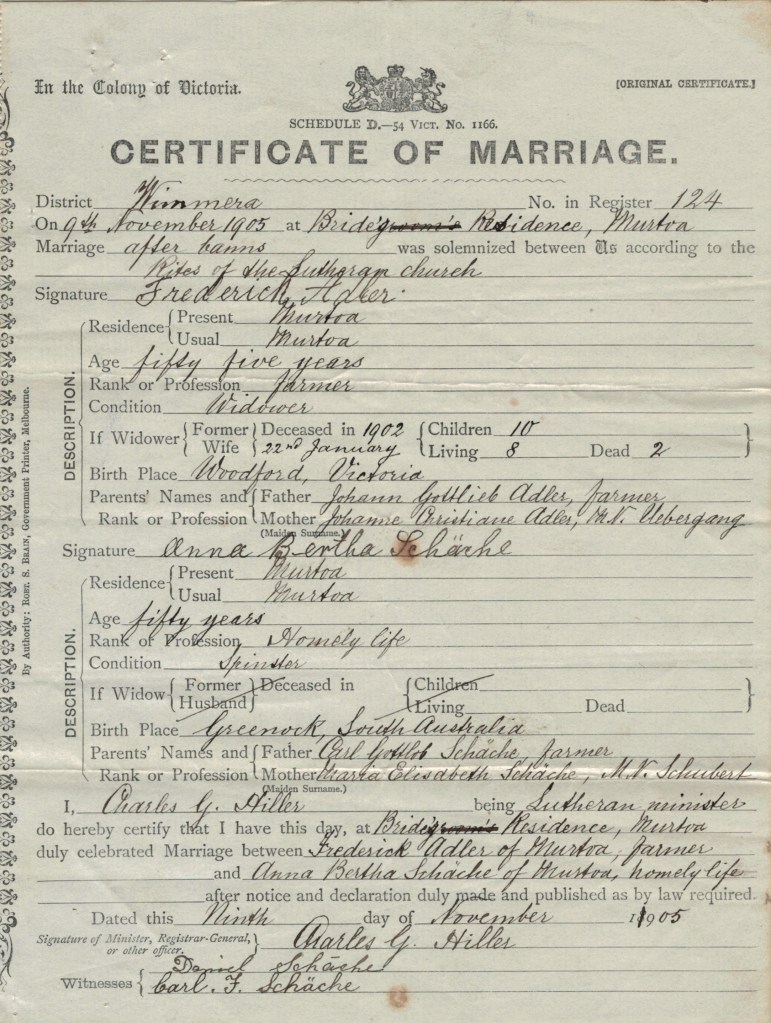 In the Colony of Victoria.
[ORIGINAL CERTIFICATE.]
SCHEDULE D.—54 VICT. No. 1166.
CERTIFICATE OF MARRIAGE.
District Wimmera No. in Register 124
On 9th November 1905 at Bride'groom's Residence, Murtoa
Marriage after banns was solemnized between Us according to the
Rites of the Lutheran church
Signature Frederick Adler.
Residence { Present Murtoa
Usual Murtoa
Age fifty five years
Rank or Profession farmer
Condition Widower
If Widower { Former Wife } Deceased in 1902 22nd January { Children 10
Living 8 Dead 2 }
Birth Place Woodford, Victoria
Parents' Names and Rank or Profession { Father Johann Gottlieb Adler, farmer
Mother Johanne Christiane Adler, M.N. Uebergang
(Maiden Surname.)
DESCRIPTION.
Signature Anna Bertha Schäche
Residence { Present Murtoa
Usual Murtoa
Age fifty years
Rank or Profession Homely life
Condition Spinster
If Widow { Former Husband } Deceased in { Children
Living Dead }
Birth Place Greenock, South Australia
Parents' Names and Rank or Profession { Father Carl Gottlob Schäche, farmer
Mother Maria Elisabeth Schäche, M.N. Schubert
(Maiden Surname.)
DESCRIPTION.
I, Charles G. Hiller being Lutheran minister
do hereby certify that I have this day, at Bride'groom's Residence, Murtoa
duly celebrated Marriage between Frederick Adler of Murtoa, farmer
and Anna Bertha Schäche of Murtoa, homely life
after notice and declaration duly made and published as by law required.
Dated this Ninth day of November 1905
Signature of Minister, Registrar-General, or other officer. } Charles G. Hiller
Witnesses { Daniel Schäche
Carl. F. Schäche
By Authority: ROBT. S. BRAIN, Government Printer, Melbourne.